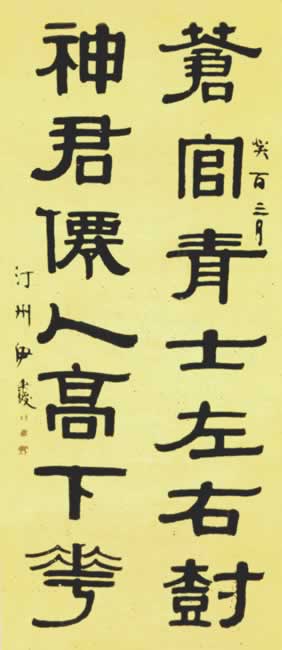 癸酉三月
蒼官青士左右尌
神君僊人高下華
汀州伊秉綬